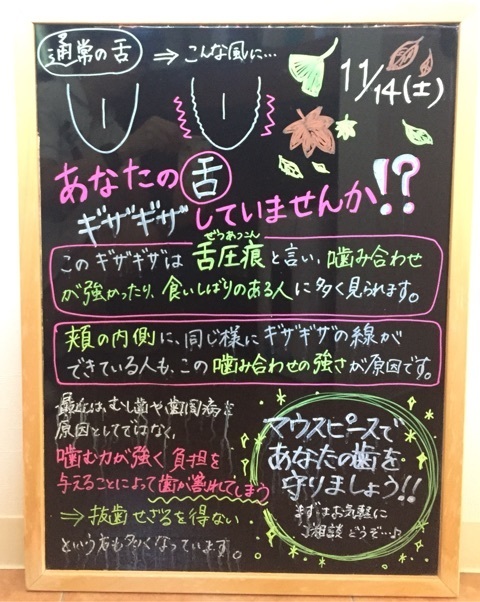 通常の舌 ⇒ こんな風に…
11/14(土)
あなたの舌
ギザギザしていませんか!?
ぜつあっこん
このギザギザは舌圧痕と言い、噛み合わせ
が強かったり、食いしばりのある人に多く見られます。
頬の内側に、同じ様にギザギザの線が
できている人も、この噛み合わせの強さが原因です。
最近は、むし歯や歯周病を
原因としてではなく、
噛む力が強く負担を
与えることによって歯が割れてしまう
⇒ 抜歯せざるを得ない
という方も多くなっています。
マウスピースで
あなたの歯を
守りましょう!!
まずはお気軽に
ご相談どうぞ…♪